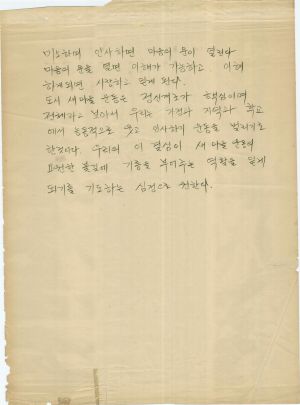 미소하며 인사하면 마음의 문이 열린다
마음의 문을 열면 이해가 가능하고 이해
하게되면 사랑하고 돕게 된다.
도시 새마을 운동은 정신계도가 핵심이며
전체라고 보아서 우리는 가정과 지역과 학교
에서 능동적으로 웃고 인사하기 운동을 벌리기로
한것이다. 우리의 이 열심이 새마을 운동의
요원한 불길에 기름을 부어주는 역할을 할게
되기를 기도하는 심정으로 전한다.